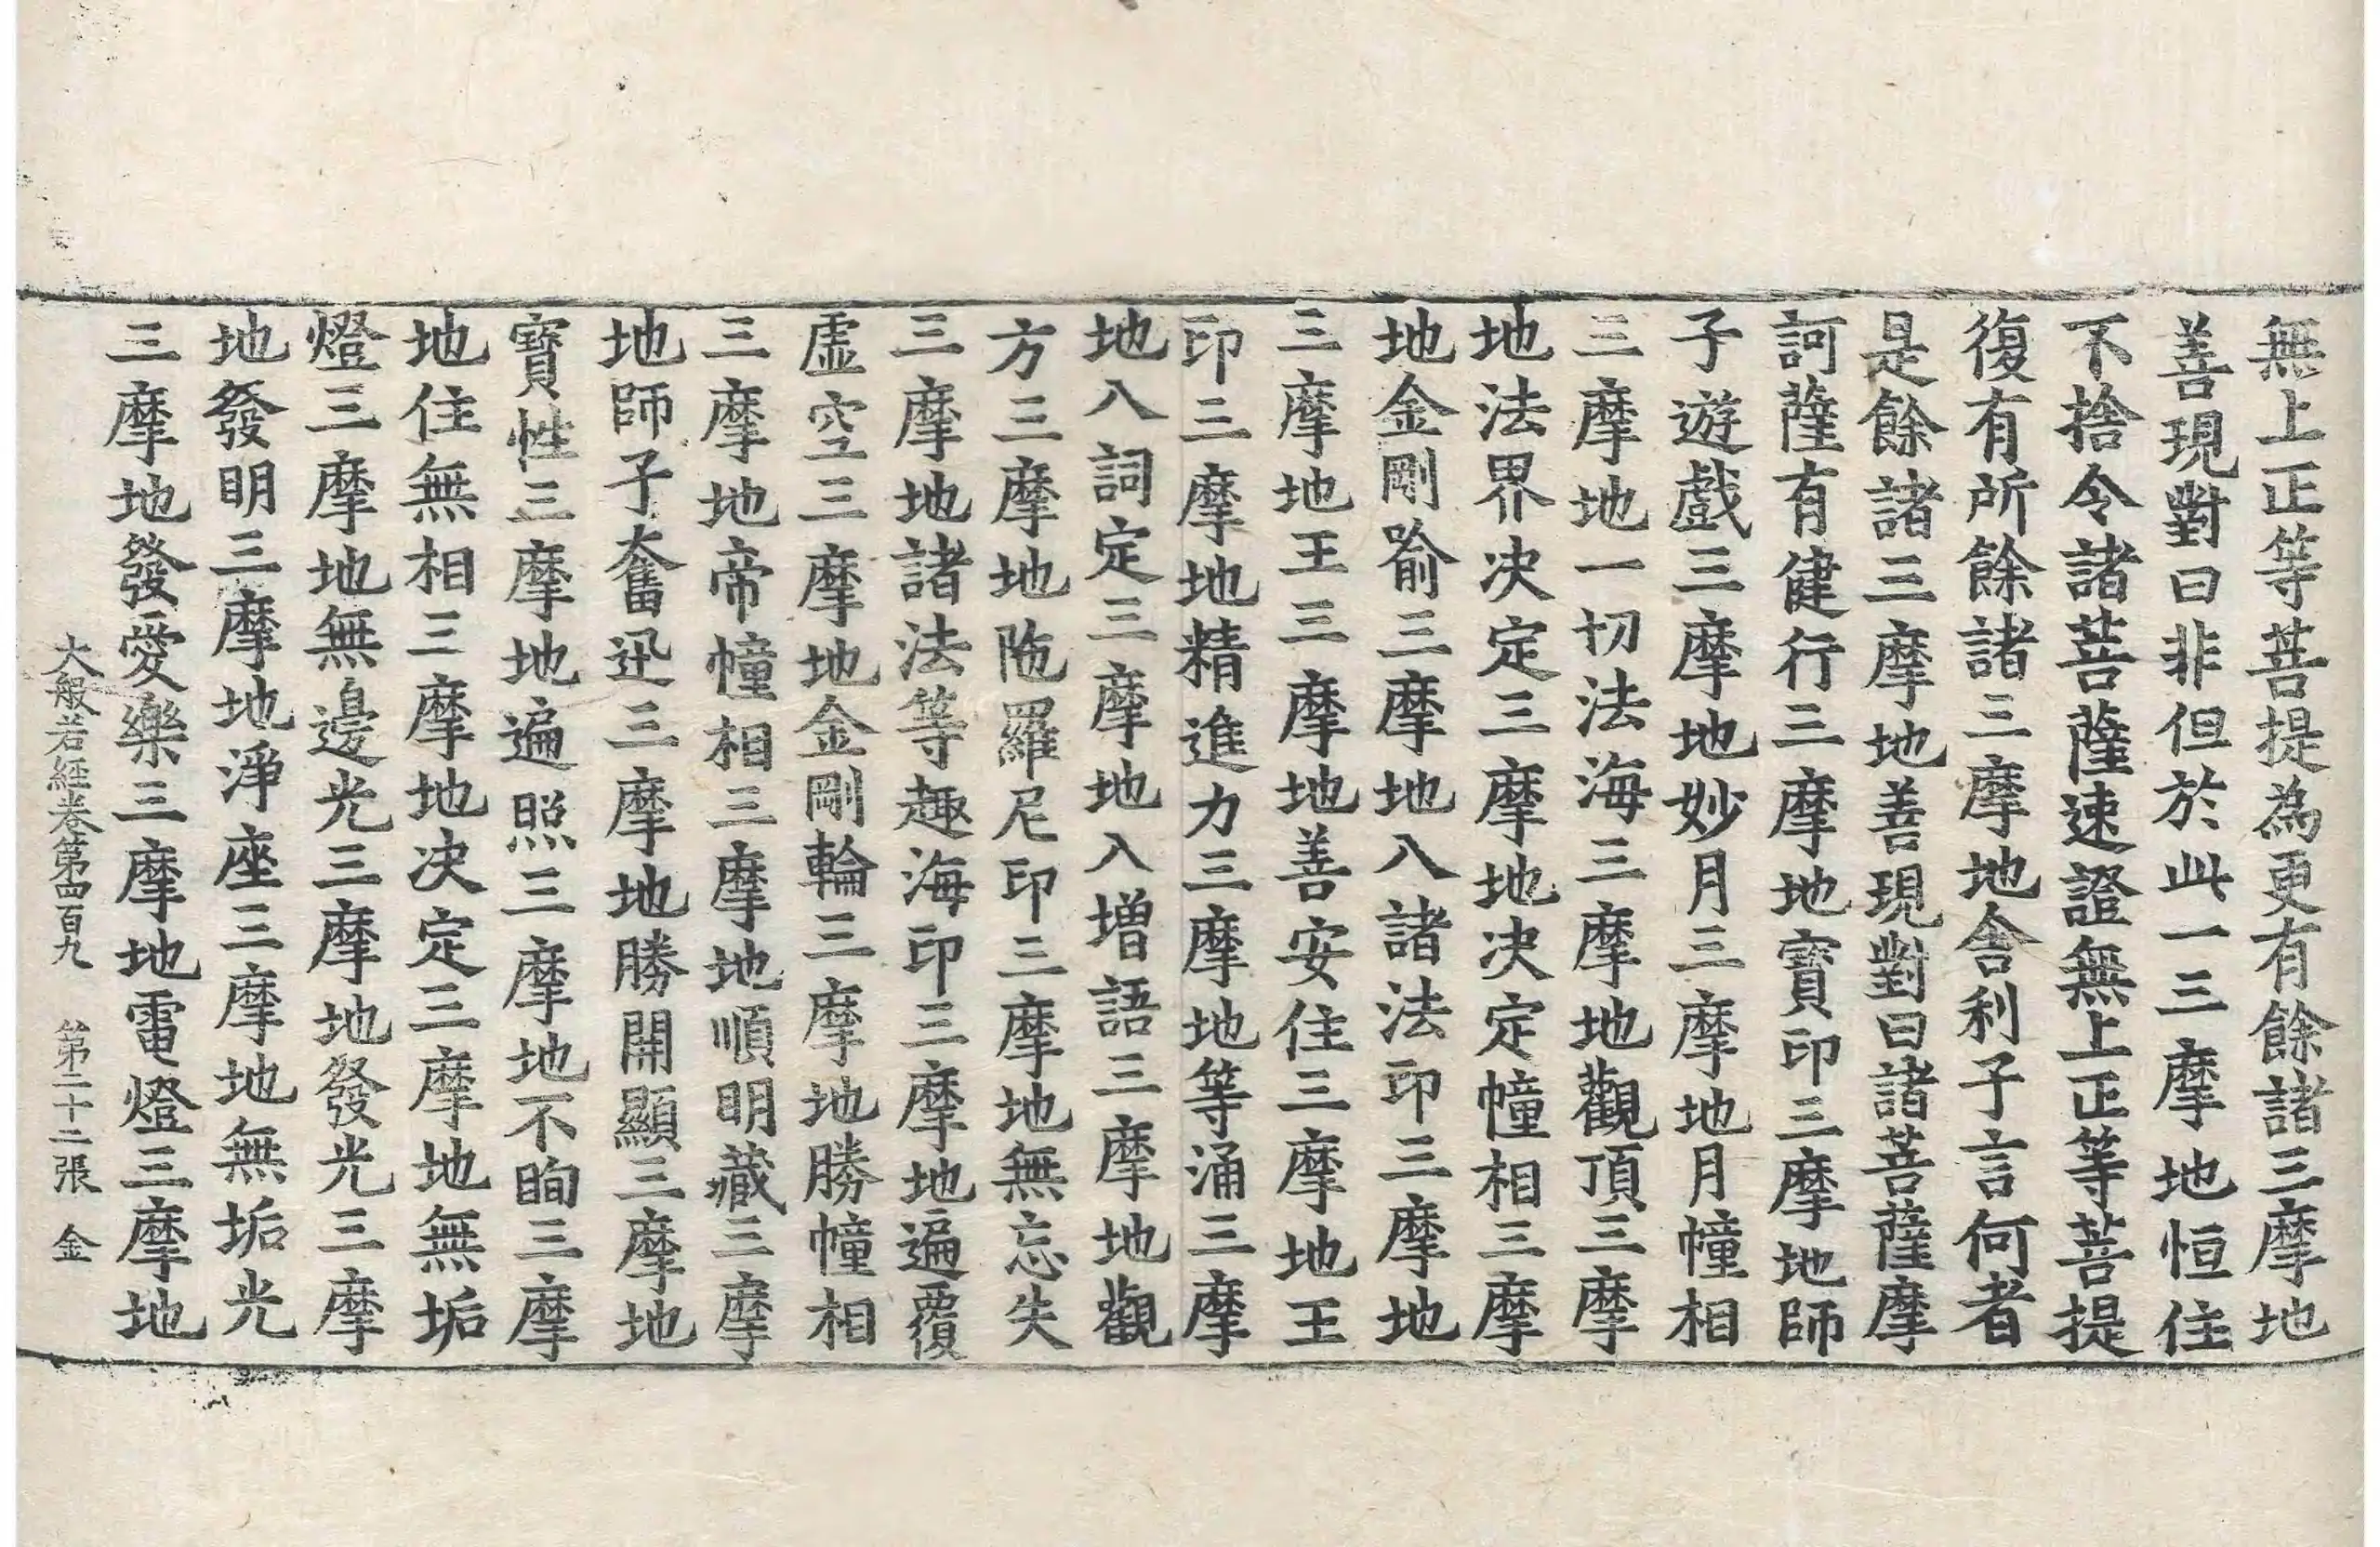 無上正等菩提為更有餘諸三摩地
善現對曰非但於此一三摩地恒住
不捨令諸菩薩速證無上正等菩提
復有所餘諸三摩地舍利子言何者
是餘諸三摩地善現對曰諸菩薩摩
訶薩有健行三摩地寶印三摩地師
子遊戲三摩地妙月三摩地月幢相
三摩地一切法海三摩地觀頂三摩
地法界決定三摩地決定幢相三摩
地金剛喻三摩地入諸法印三摩地
三摩地王三摩地善安住三摩地王
印三摩地精進力三摩地等涌三摩
地入詞定三摩地入增語三摩地觀
方三摩地陁羅尼印三摩地無忘失
三摩地諸法等趣海印三摩地遍覆
虛空三摩地金剛輪三摩地勝幢相
三摩地帝幢相三摩地順明藏三摩
地師子奮迅三摩地勝開顯三摩地
寶性三摩地遍照三摩地不眴三摩
地住無相三摩地決定三摩地無垢
燈三摩地無邊光三摩地發光三摩
地發明三摩地淨座三摩地無垢光
三摩地發愛樂三摩地電燈三摩地
大般若經卷第四百九 第二十二張 金